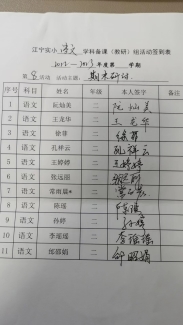 辽宁实小 语文 学科备课(教研)组活动签到表
2012—2013年度第 学期
第8活动 活动主题: 期末研讨
序号 科目 姓名 年级 本人签字 备注
1 语文 阮灿美 二 阮灿美
2 语文 王龙华 二 王龙华
3 语文 徐菲 二 徐菲
4 语文 孔祥云 二 孔祥云
5 语文 王婷婷 二 王婷婷
6 语文 张远丽 二
7 语文 常雨晨* 二
8 语文 陈瑶 二 陈瑶
9 语文 孙婷 二 孙婷
10 语文 李瑶瑶 二 李瑶瑶
11 语文 邰昭娟 二 邰昭娟